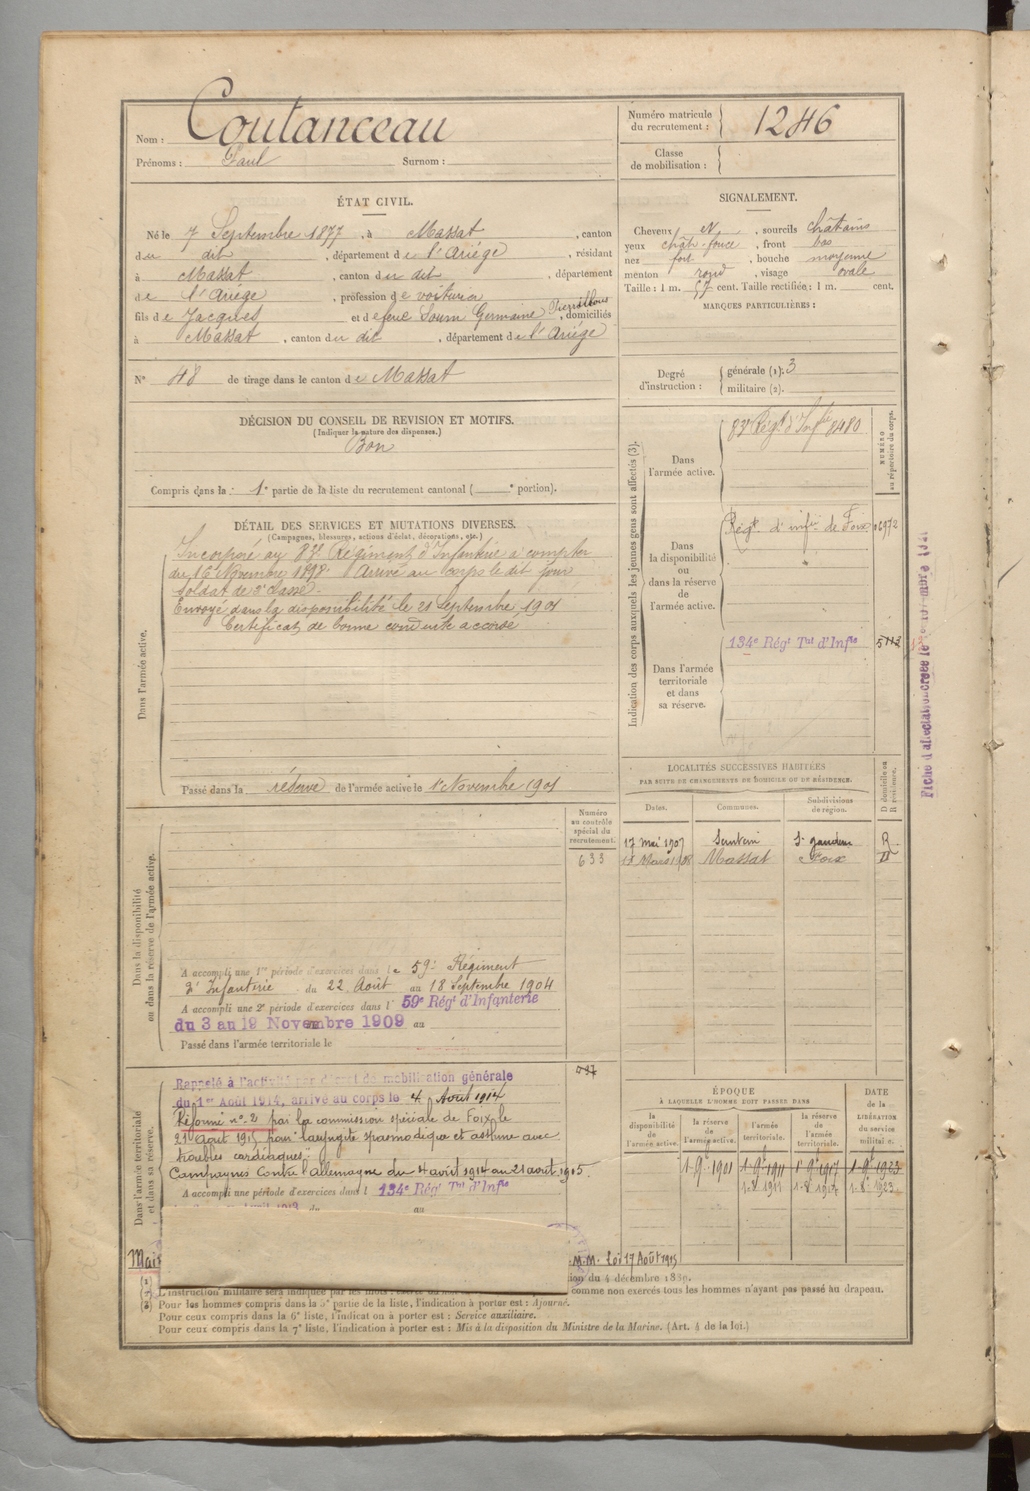 Nom : Coutanceau
Prénoms : Paul Surnom :
Numéro matricule du recrutement : 1246
Classe de mobilisation :
ÉTAT CIVIL.
Né le 7 Septembre 1877, à Massat, canton
du dit, département de l'Ariège, résidant
à Massat, canton du dit, département
de l'Ariège, profession de voiturier
fils de Jacques et de feue Soum Germaine, domiciliés
à Massat, canton du dit, département de l'Ariège
N° 48 de tirage dans le canton de Massat
SIGNALEMENT.
Cheveux N, sourcils châtains
yeux chât. foncé, front bas
nez fort, bouche moyenne
menton rond, visage ovale
Taille : 1 m. 57 cent. Taille rectifiée : 1 m. cent.
MARQUES PARTICULIÈRES :
Degré d'instruction : générale (1). 3
militaire (2).
DÉCISION DU CONSEIL DE REVISION ET MOTIFS.
(Indiquer la nature des dispenses.)
Bon
Compris dans la 1e partie de la liste du recrutement cantonal ( e portion).
DÉTAIL DES SERVICES ET MUTATIONS DIVERSES.
(Campagnes, blessures, actions d'éclat, décorations, etc.)
Dans l'armée active.
Incorporé au 83e Régiment d'Infanterie à compter
du 16 Novembre 1898. Arrivé au corps le dit jour
Soldat de 2e classe.
Envoyé dans la disponibilité le 21 Septembre 1901
Certificat de bonne conduite accordé
Passé dans la réserve de l'armée active le 1er Novembre 1901
Indication des corps auxquels les jeunes gens sont affectés (3).
NUMÉRO au répertoire du corps.
Dans l'armée active.
83e Régt d'Inf.ie 8480
Dans la disponibilité ou dans la réserve de l'armée active.
Régt. d'infie de Foix 06972
Dans l'armée territoriale et dans sa réserve.
134e Régt Tal d'Infie
LOCALITÉS SUCCESSIVES HABITÉES
PAR SUITE DE CHANGEMENTS DE DOMICILE OU DE RÉSIDENCE.
Dates. Communes. Subdivisions de région. D domicile ou R résidence.
17 mai 1907 Sentein St gaudens R
Mars 1908 Massat Foix D
Numéro au contrôle spécial du recrutement.
633
Dans la disponibilité ou dans la réserve de l'armée active.
A accompli une 1re période d'exercices dans le 59e Régiment
d'Infanterie du 22 Août au 18 Septembre 1904
A accompli une 2e période d'exercices dans l 59e Régt d'Infanterie
du 3 au 19 Novembre 1909 au
Passé dans l'armée territoriale le
Dans l'armée territoriale et dans sa réserve.
Rappelé à l'activité par décret de mobilisation générale
du 1er Août 1914, arrivé au corps le 4 Août 1914
Réformé n° 2 par la commission spéciale de Foix le
21 Août 1915 pour laryngite spasmodique et asthme avec
troubles cardiaques.
Campagnes Contre l'Allemagne du 4 août 1914 au 21 août 1915
A accompli une période d'exercices dans l 134e Régt Tal d'Infie
ÉPOQUE
À LAQUELLE L'HOMME DOIT PASSER DANS
la disponibilité de l'armée active. la réserve de l'armée active. l'armée territoriale. la réserve de l'armée territoriale.
DATE de la LIBÉRATION du service militaire.
1-9e 1901 1-9e 1911 1-9e 1917 1-9e 1923
1-8e 1911 1-8e 1917 1-8e 1923
M.M. Loi 17 Août 1915
comme non exercés tous les hommes n'ayant pas passé au drapeau.
Pour les hommes compris dans la 5e partie de la liste, l'indication à porter est : Ajourné.
Pour ceux compris dans la 6e liste, l'indication à porter est : Service auxiliaire.
Pour ceux compris dans la 7e liste, l'indication à porter est : Mis à la disposition du Ministre de la Marine. (Art. 4 de la loi.)